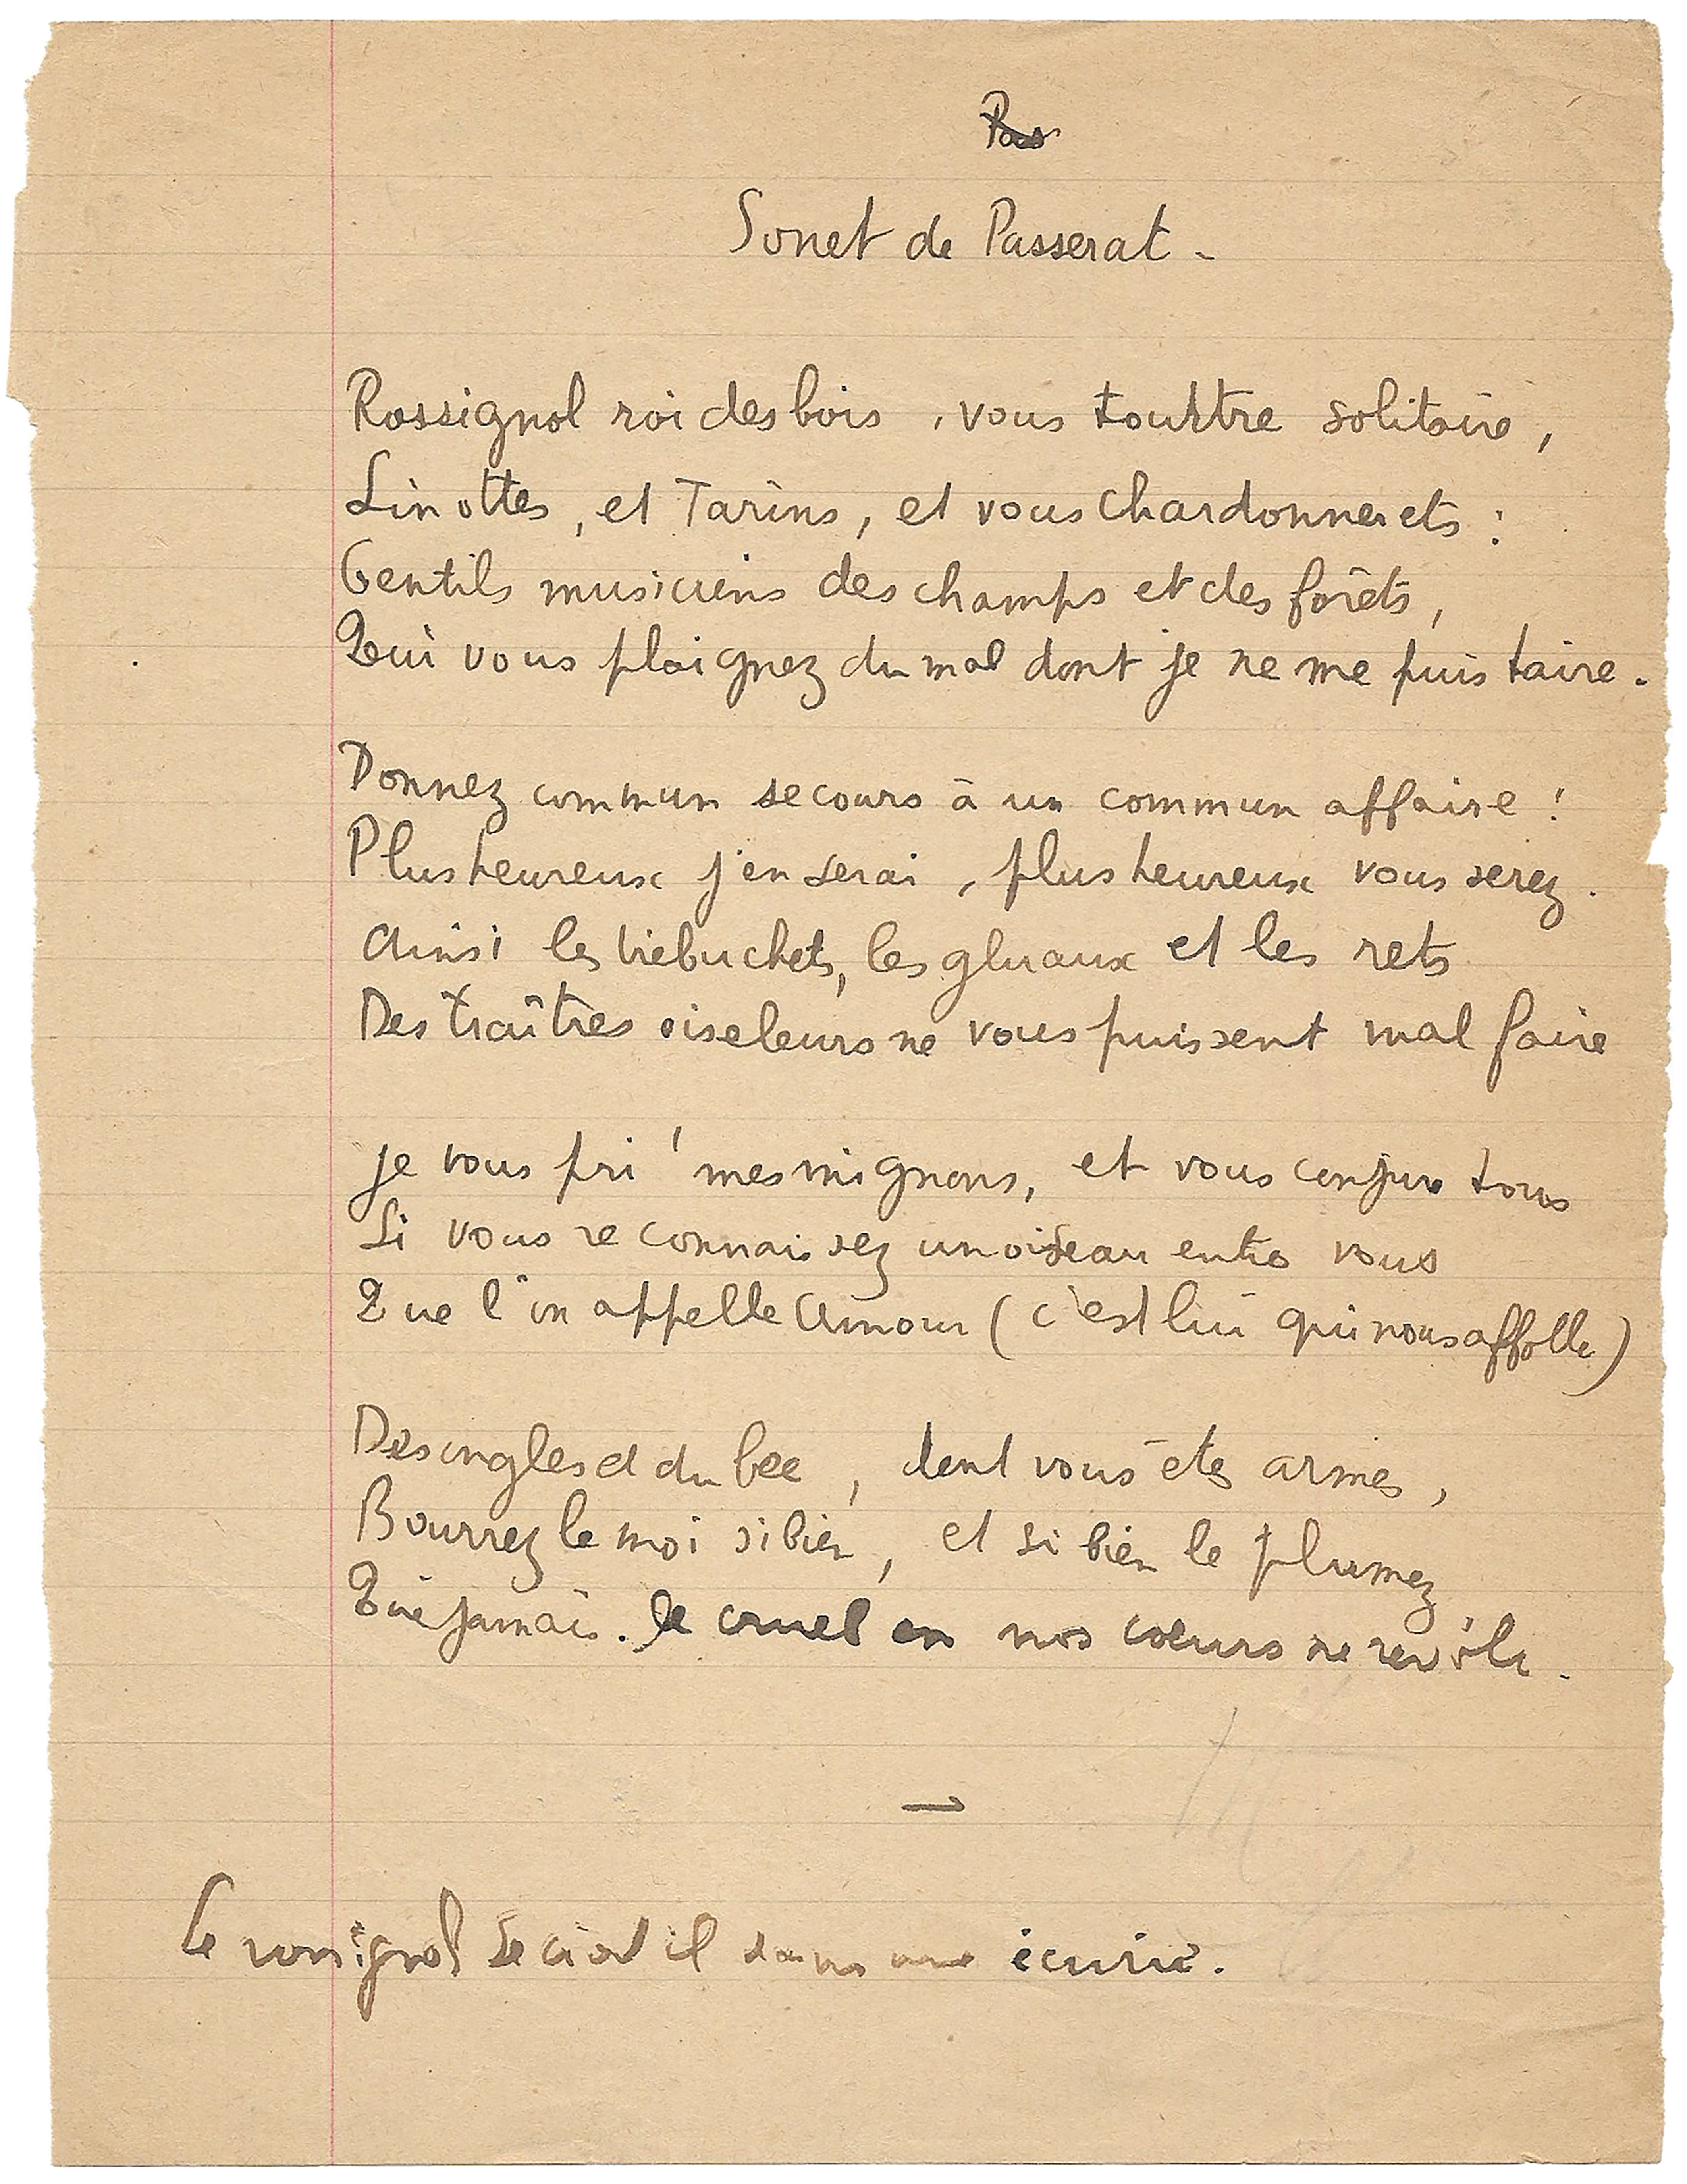 Pas
Sonet de Passerat -
Rossignol roi des bois, vous tourtre solitaire,
Linottes, et Tarins, et vous chardonnerets :
Gentils musiciens des champs et des forêts,
Qui vous plaignez du mal dont je ne me puis taire.
Donnez commun secours à un commun affaire !
Plus heureux j'en serai, plus heureux vous serez.
Ainsi les trebuchets, les gluaux et les rets
Des traîtres oiseleurs ne vous puissent mal faire
Je vous pri' mes mignons, et vous conjure tous
Si vous reconnaissez un oiseau entre vous
Que l'on appelle Amour (c'est lui qui nous affolle)
Des ongles et du bec, dont vous êtes armés,
Bourrez le moi si bien, et si bien le plumez
Que jamais. le cruel en nos cœurs ne revole.
Le rossignol il dans une écurie.